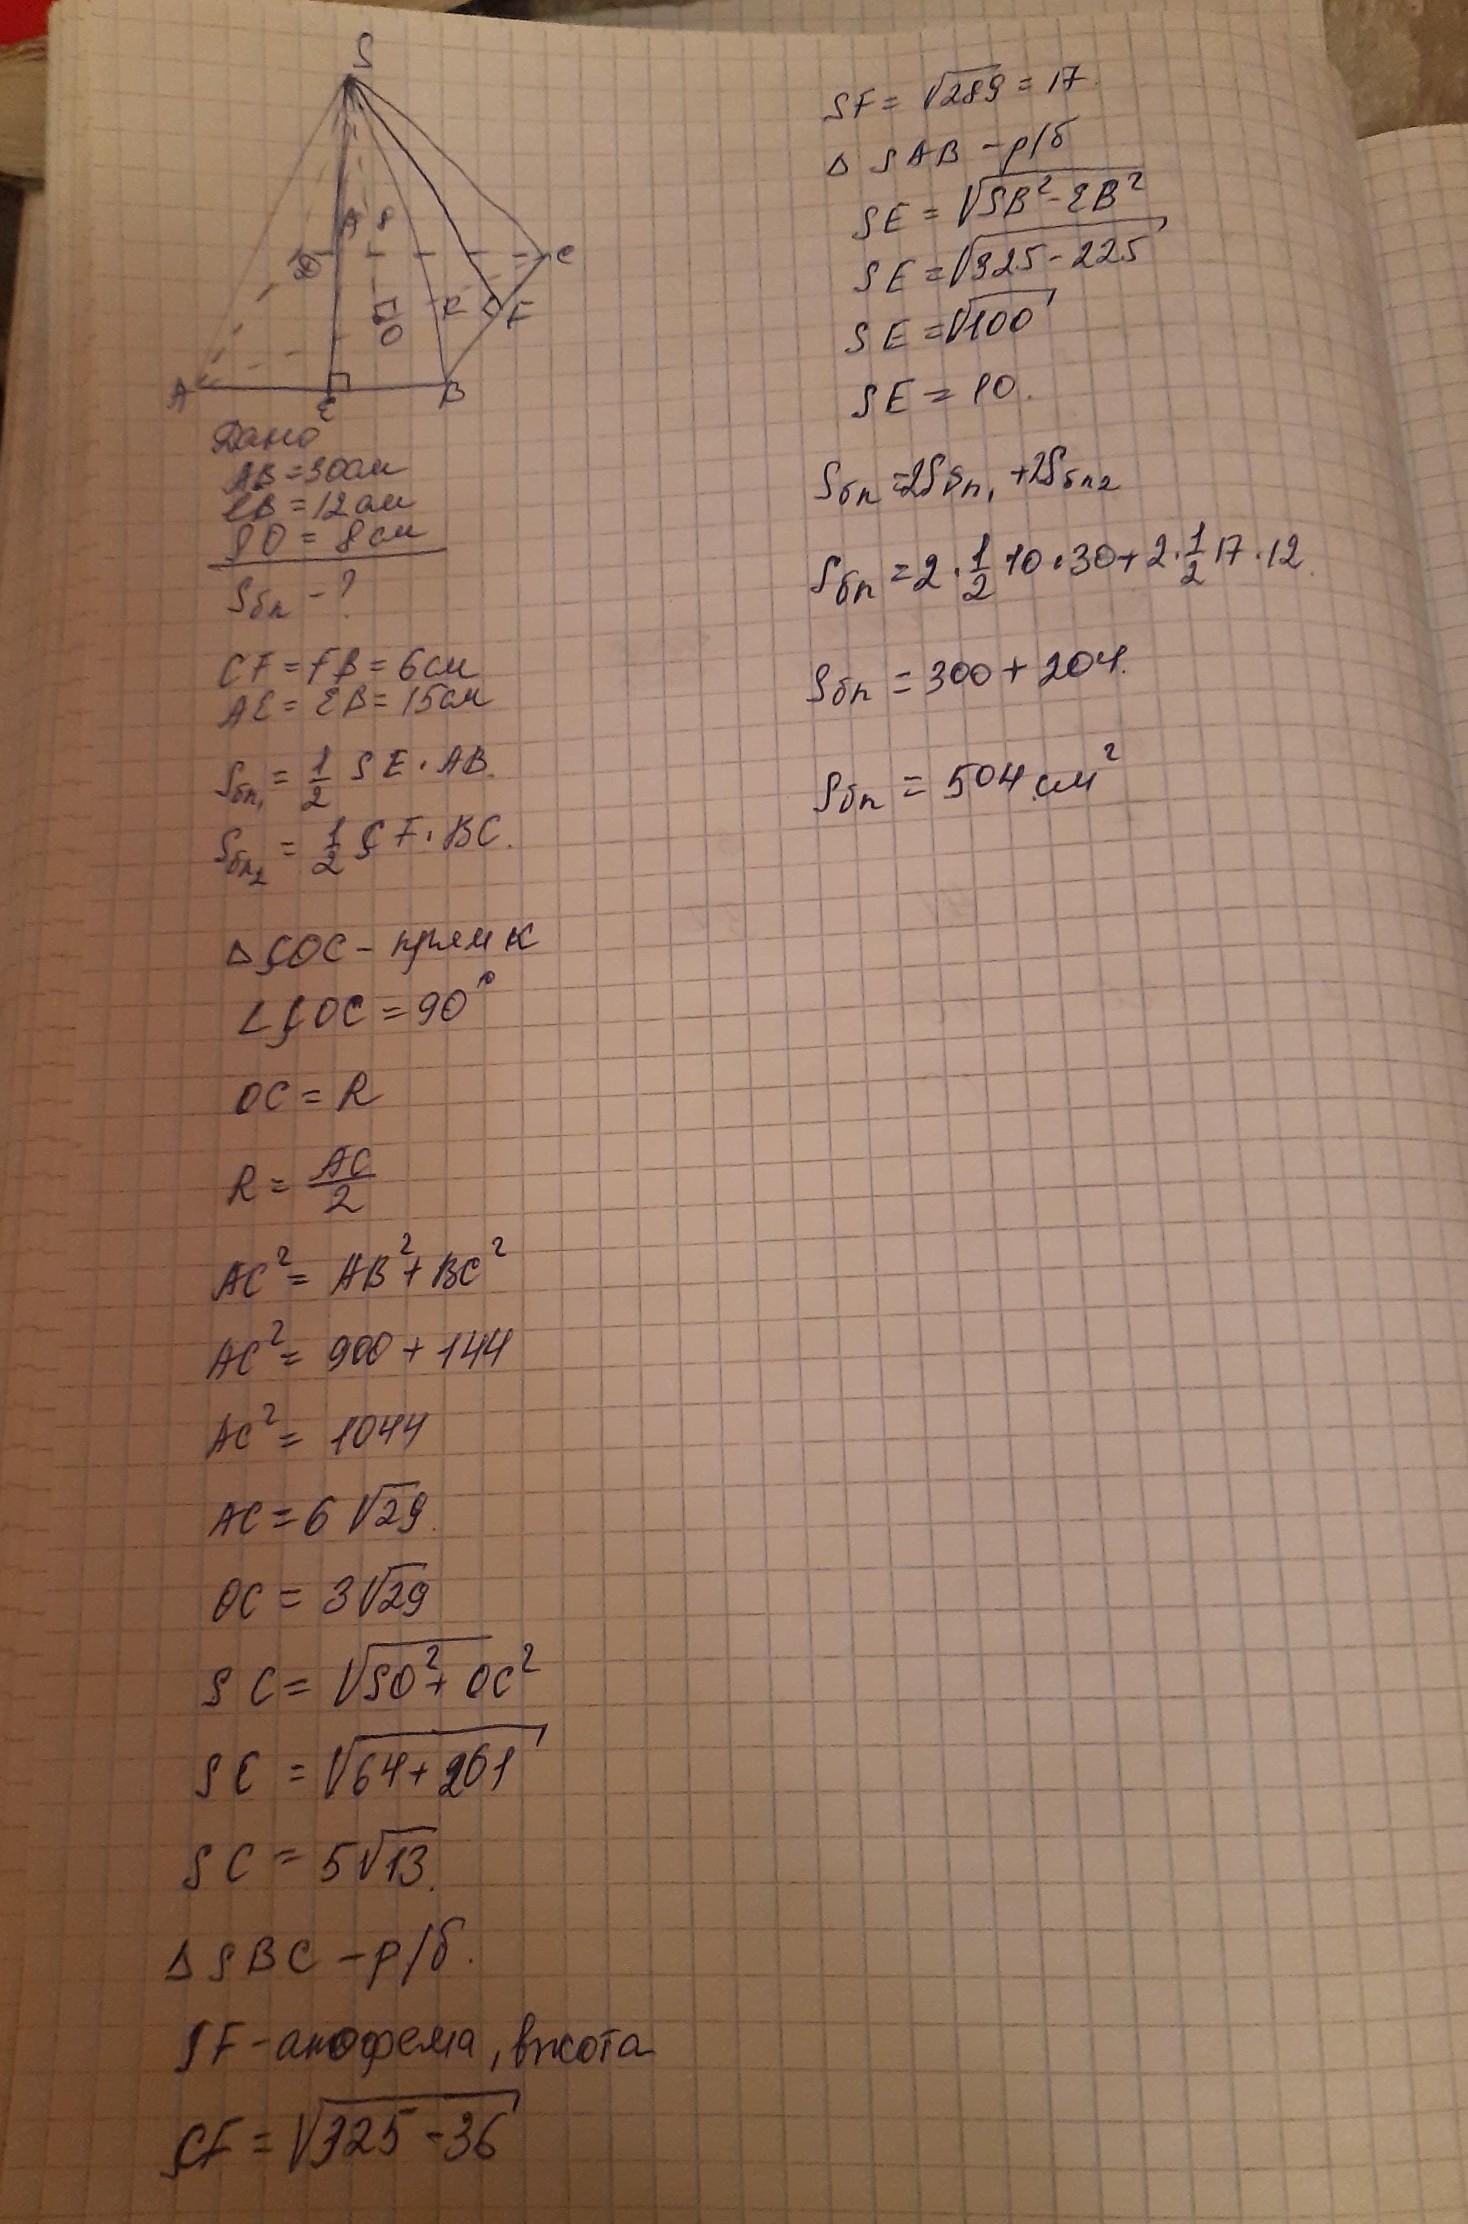 S
A 8
D
C
K
F
O
A
E
B
Дано
AB = 30 см
CB = 12 см
SO = 8 см
Sбп - ?
CF = FB = 6 см
AE = EB = 15 см
Sбп₁ = 1/2 SE · AB.
Sбп₂ = 1/2 SF · BC.
△ SOC - прямк
∠ SOC = 90°
OC = R
R = AC/2
AC² = AB² + BC²
AC² = 900 + 144
AC² = 1044
AC = 6 √29.
OC = 3√29
SC = √SO² + OC²
SC = √64 + 261
SC = 5√13.
△ SBC - р/б.
SF - апофема, высота
SF = √325 - 36
SF = √289 = 17.
△ SAB - р/б
SE = √SB² - EB²
SE = √325 - 225
SE = √100
SE = 10.
Sбп = 2Sбп₁ + 2Sбп₂
Sбп = 2 · 1/2 10 · 30 + 2 · 1/2 17 · 12.
Sбп = 300 + 204.
Sбп = 504 см²